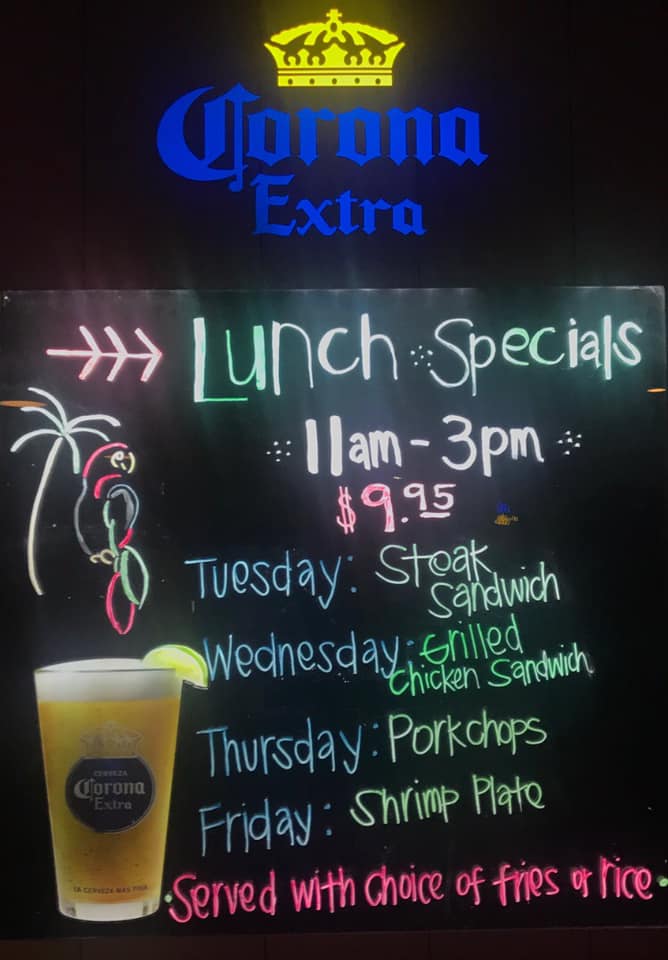 Corona
Extra
Lunch Specials
11am - 3pm
$9.95
Tuesday: Steak
Sandwich
Wednesday: Grilled
Chicken Sandwich
Thursday: Porkchops
Friday: Shrimp Plate
CERVEZA
Corona
Extra
LA CERVEZA MAS FINA
Served with choice of fries or rice